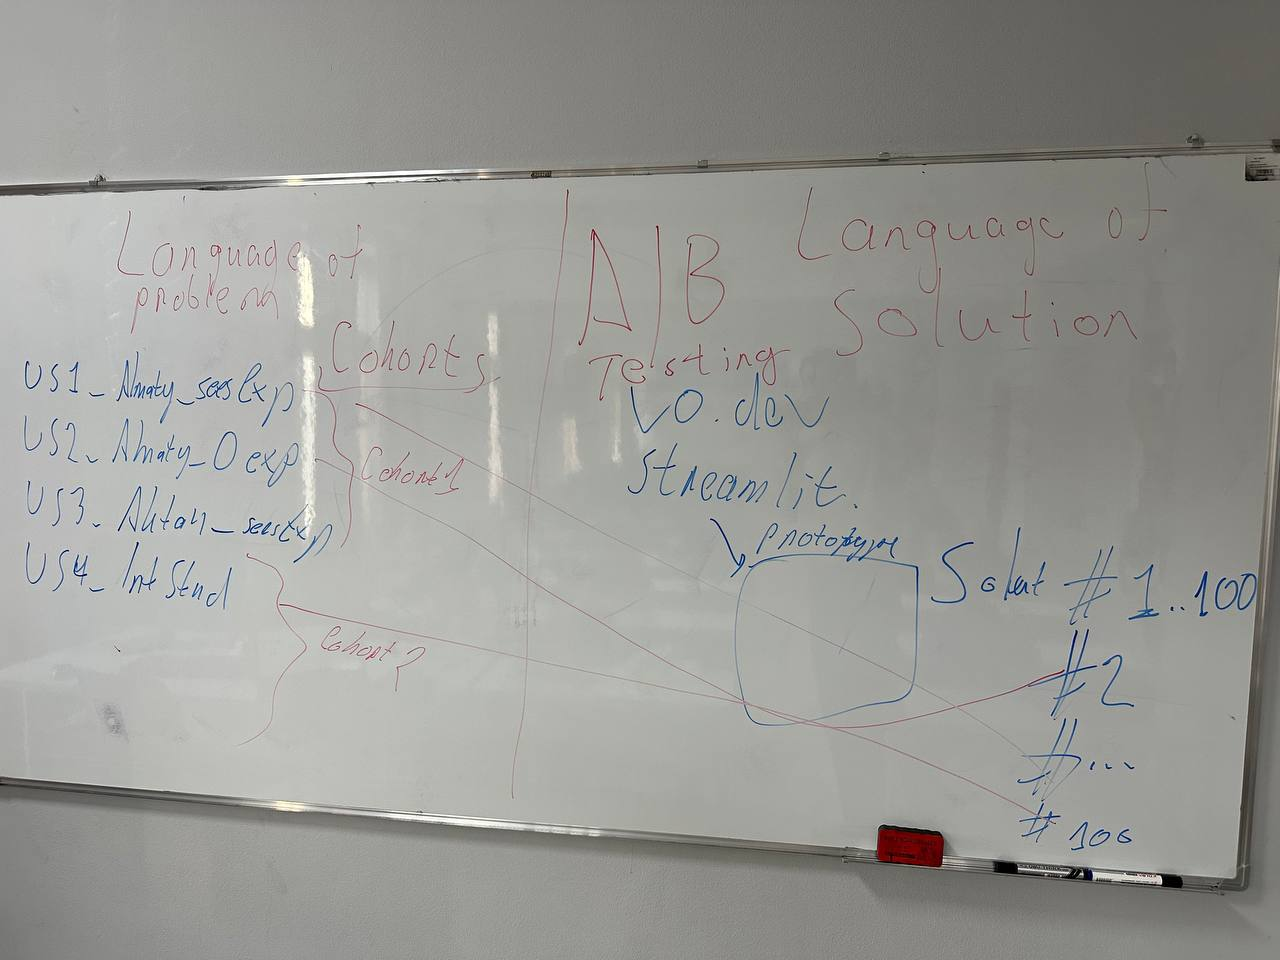 Language of
problem
Cohorts
US1_Almaty_seesExp
US2_Almaty_0 exp
Cohort 1
US3_Aktau_seesExp
US4_Int Stud
Cohort 2
A|B
Testing
Language of
Solution
v0.dev
Streamlit.
prototype
#1..100
#2
#...
#100